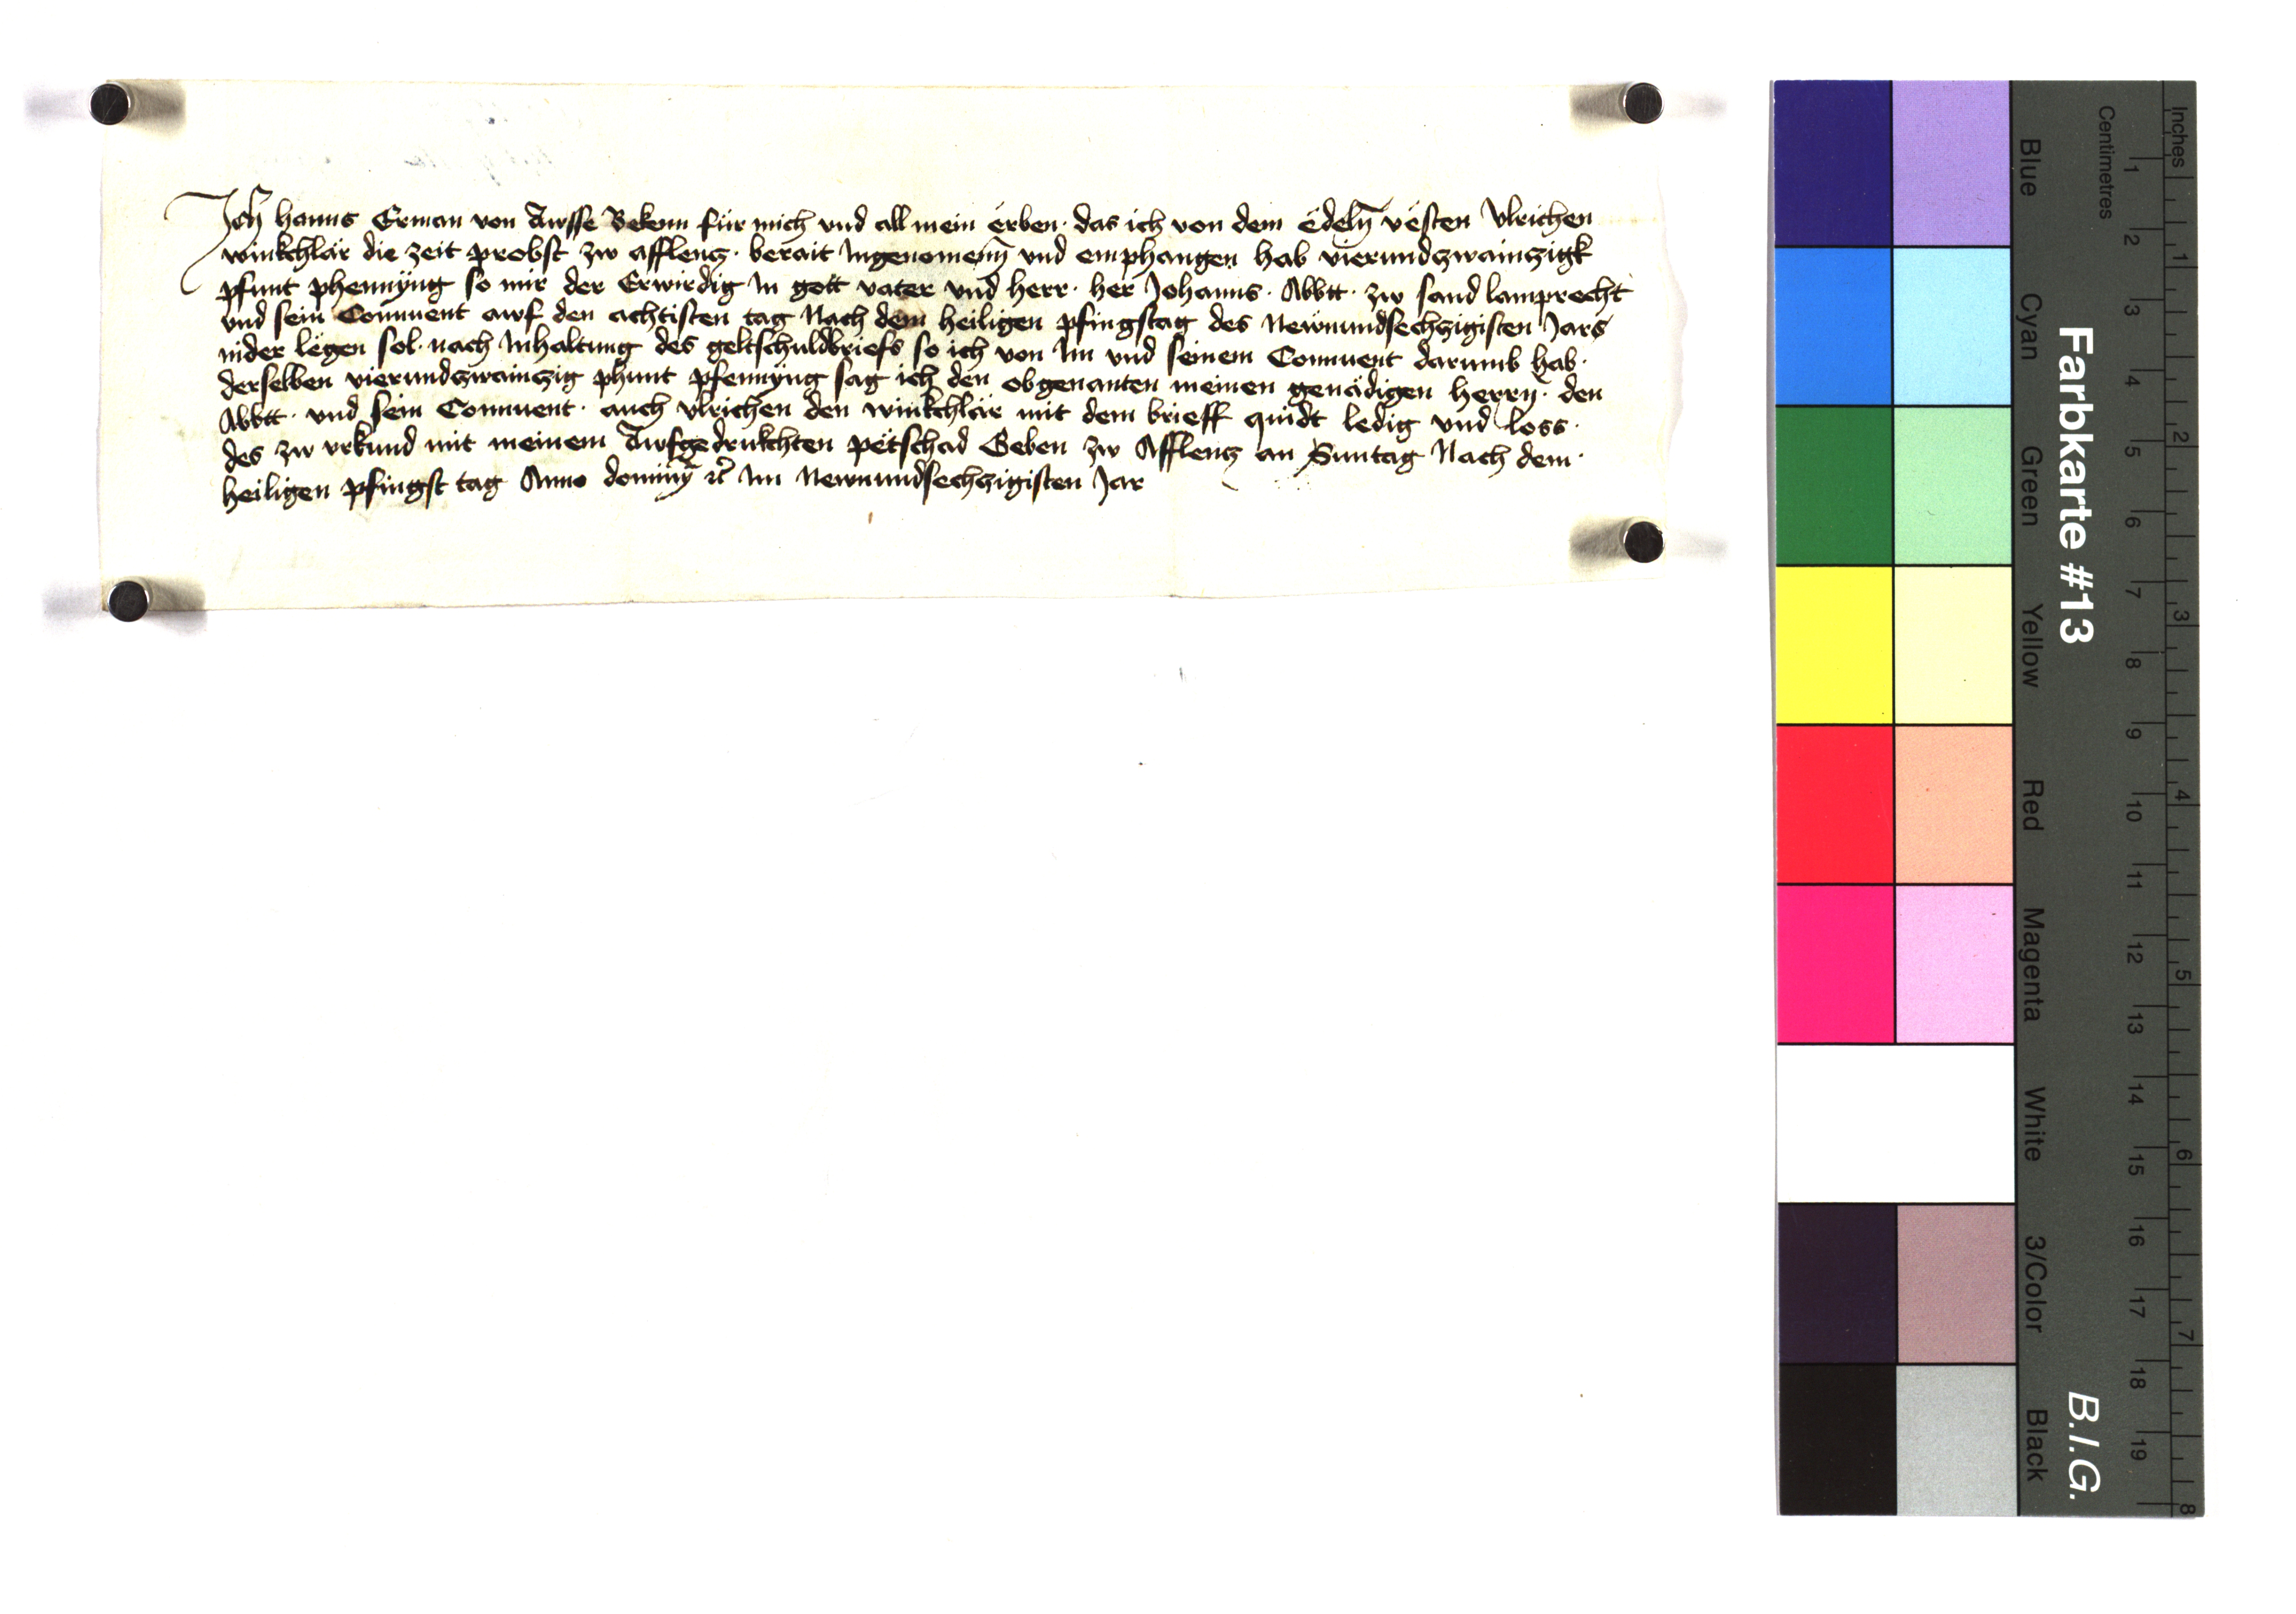 Ich hanns Erman von Awsse Bekenn für mich vnd all mein erben · das ich von dem edeln̄ vesten Vlrichen
winkchlär die zeit probst zw afflencz · berait Ingenomenn̄ vnd emphangen hab vierundzwainczigk
pfunt phennyng so mir der Erwirdig In gott vater vnd herr · her Johanns · Abbtt · zw sand lamprecht
vnd sein Conuent awf den achtisten tag Nach dem heiligen pfingstag des Newnundsechczigisten Jars
nider legen sol · nach Inhaltung des geltschuldbriefs so ich von Im vnd seinem Conuent darumb hab ·
derselben vierundzwainczig phunt pfennyng sag ich den obgenanten meinen genädigen herrn̄ · den
Abbtt · vnd sein Conuent · auch vlrichen den winkchlär mit dem brieff quidt ledig vnd loss ·
des zw vrkund mit meinem Awfgedrukchten petschad Geben zw Afflencz an Suntag Nach dem ·
heiligen pfingst tag Anno dominȳ ꝛc̄ Im Newnundsechczigisten Jar
Farbkarte #13
B.I.G.
Inches
Centimetres
1 2 3 4 5 6 7 8 9 10 11 12 13 14 15 16 17 18 19
1 2 3 4 5 6 7 8
Blue
Cyan
Green
Yellow
Red
Magenta
White
3/Color
Black